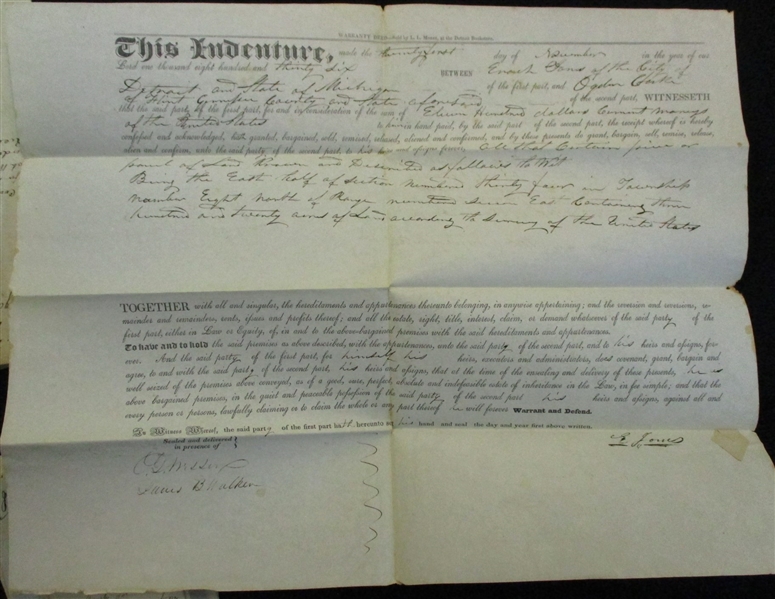 WARRANTY DEED—Sold by L. L. Morse, at the Detroit Bookstore.
This Indenture, made the twenty first day of November in the year of our
Lord one thousand eight hundred and thirty six BETWEEN Enoch Jones of the City of
Detroit and State of Michigan of the first part, and Ogden Clarke
of Flint Genesee County and State aforesaid of the second part, WITNESSETH
that the said party of the first part, for and in consideration of the sum of Eleven Hundred dollars Current money
of the United States to him in hand paid, by the said party of the second part, the receipt whereof is hereby
confessed and acknowledged, hath granted, bargained, sold, remised, released, aliened and confirmed, and by these presents do grant, bargain, sell, remise, release,
alien and confirm, unto the said party of the second part, to his heirs and assigns forever, All that Certain piece or
parcel of Land Known and Described as follows To Wit
Being the East half of Section Numbered thirty four in Township
number Eight North of Range numbered seven East Containing three
hundred and twenty acres of Land according to Survey of the United States
TOGETHER with all and singular, the hereditaments and appurtenances thereunto belonging, in anywise appertaining; and the reversion and reversions, re-
mainder and remainders, rents, issues and profits thereof; and all the estate, right, title, interest, claim, or demand whatsoever of the said party of the
first part, either in Law or Equity, of, in and to the above-bargained premises with the said hereditaments and appurtenances.
To have and to hold the said premises as above described, with the appurtenances, unto the said party of the second part, and to his heirs and assigns, for-
ever. And the said party of the first part, for himself his heirs, executors and administrators, does covenant, grant, bargain and
agree, to and with the said party of the second part, his heirs and assigns, that at the time of the ensealing and delivery of these presents, he is
well seized of the premises above conveyed, as of a good, sure, perfect, absolute and indefeasible estate of inheritance in the Law, in fee simple; and that the
above bargained premises, in the quiet and peaceable possession of the said party of the second part his heirs and assigns, against all and
every person or persons, lawfully claiming or to claim the whole or any part thereof he will forever Warrant and Defend.
In Witness Whereof, the said party of the first part hath hereunto set his hand and seal the day and year first above written.
Sealed and delivered
in presence of
E. Jones
James B. Walker